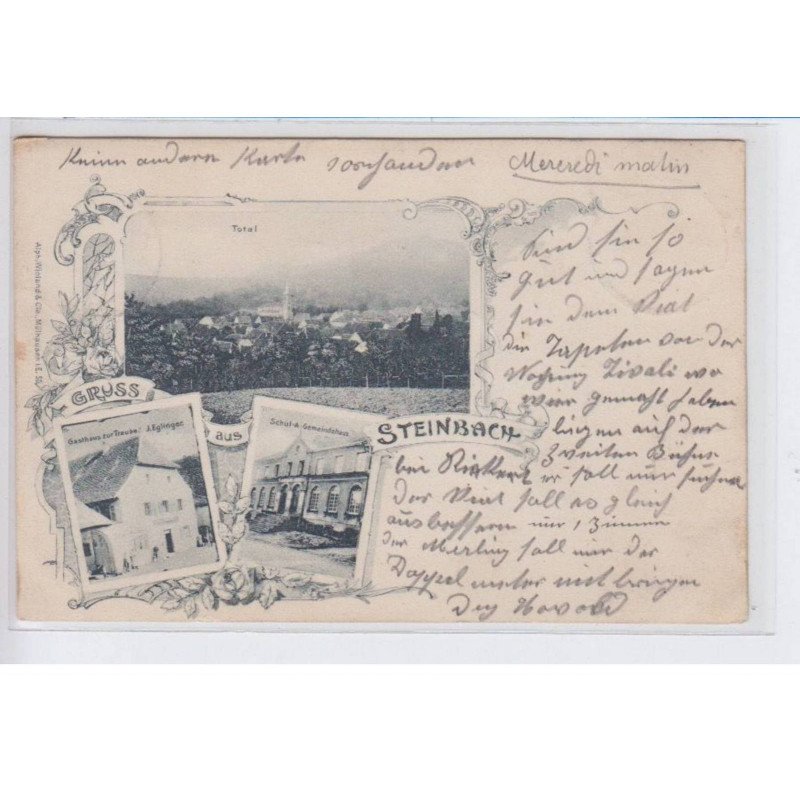 Keine andere Karte vorhanden
Mercredi matin
Total
Alph. Wicland & Cie. Mülhausen i. E.
GRUSS
aus
STEINBACH
Gasthaus zur Traube J. Eglinger
Schul- & Gemeindehaus
Sind sie so
gut und sagen
sie dem Riat
die Tapeten von der
Tivoli wo
wier gemacht haben
liegen auf der
zweiten Bühne
bei er soll nur suchen
der Riat soll es gleich
ausbessern nur 1 Zimmer
der Merling soll nur der
Doppel meter mit bringen